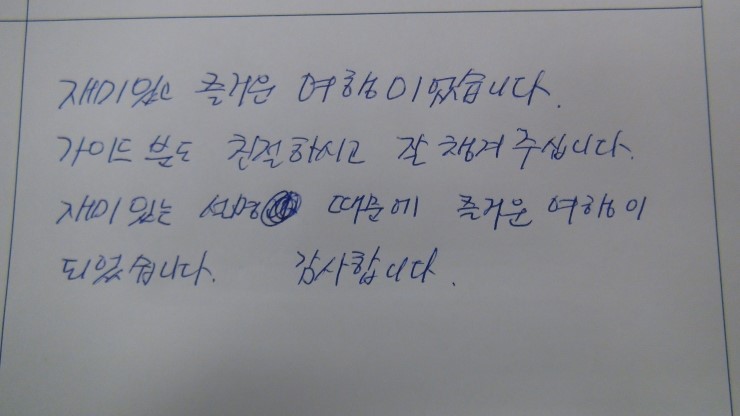 재미있고 즐거운 여행이었습니다.
가이드분도 친절하시고 잘 챙겨주십니다.
재미있는 설명 때문에 즐거운 여행이
되었습니다. 감사합니다.